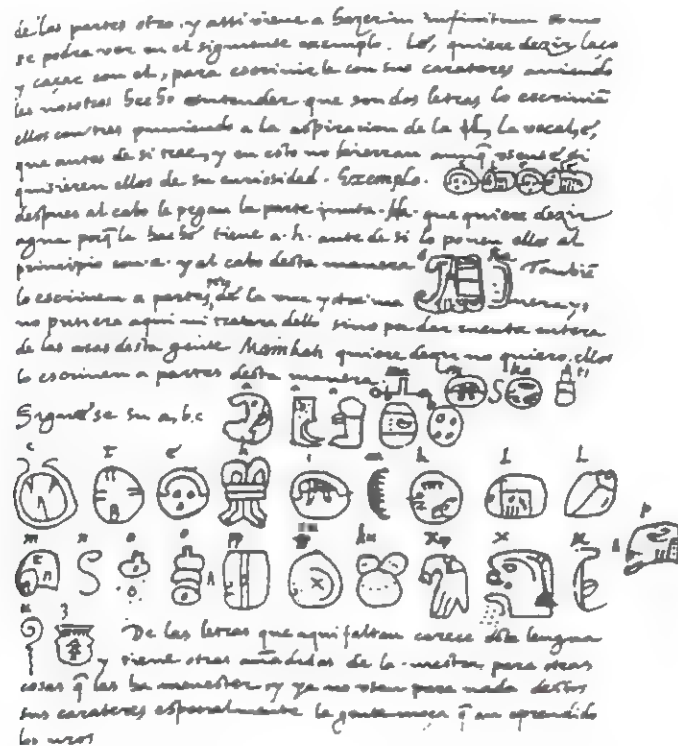 de las partes otro, y assi viene a hazer in infinitum como
se podra ver en el siguiente exemplo. Lé, quiere dezir laço
y caçar con el, para escrivirle con sus carateres aviendo
les nosotros hecho entender que son dos letras lo escrivia
ellos con tres puniendo a la aspiracion de la l, la vocal, é,
que antes de si trae, y en esto no hierran aunq̃ usense si
quisieren ellos de su curiosidad. Exemplo.
despues al cabo le pegan la parte junta. Ha. que quiere dezir
agua porq̃ la hache tiene a. h. ante de si lo ponen ellos al
principio con a. y al cabo desta manera ha Tambiẽ
lo escriven a partes, de la una y otra ma nera, yo
no pusiera aqui ni tratara dello sino por dar cuenta entera
de las cosas desta gente Mainkati quiere dezir no quiero, ellos
lo escriven a partes desta manera: ma i n ka ti
Siguese su a, b, c a a a b b
c t e h i m k l l
m n o o pp p ku x x u
u z De las letras que aqui faltan carece esta lengua
y tiene otras añadidas de la nuestra para otras
cosas q̃ las ha menester y ya no usan para nada destos
sus carateres especialmente la gente moça q̃ an aprendido
los nros